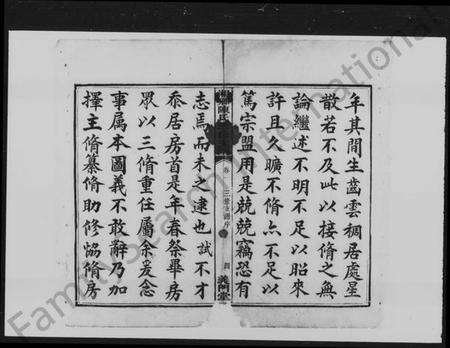 年其間生齒雲稠居處星
散若不及此以接脩之無
論繼述不明不足以昭來
許且久曠不脩亦不足以
篤宗盟用是兢兢竊恐有
陳氏
卷一
三脩支譜序
四
義門堂
志焉而未之逮也試不才
忝居房首是年春祭畢房
眾以三脩重任屬余爰念
事属本圖義不敢辭乃加
擇主脩纂脩助修協脩房
FamilySearch International